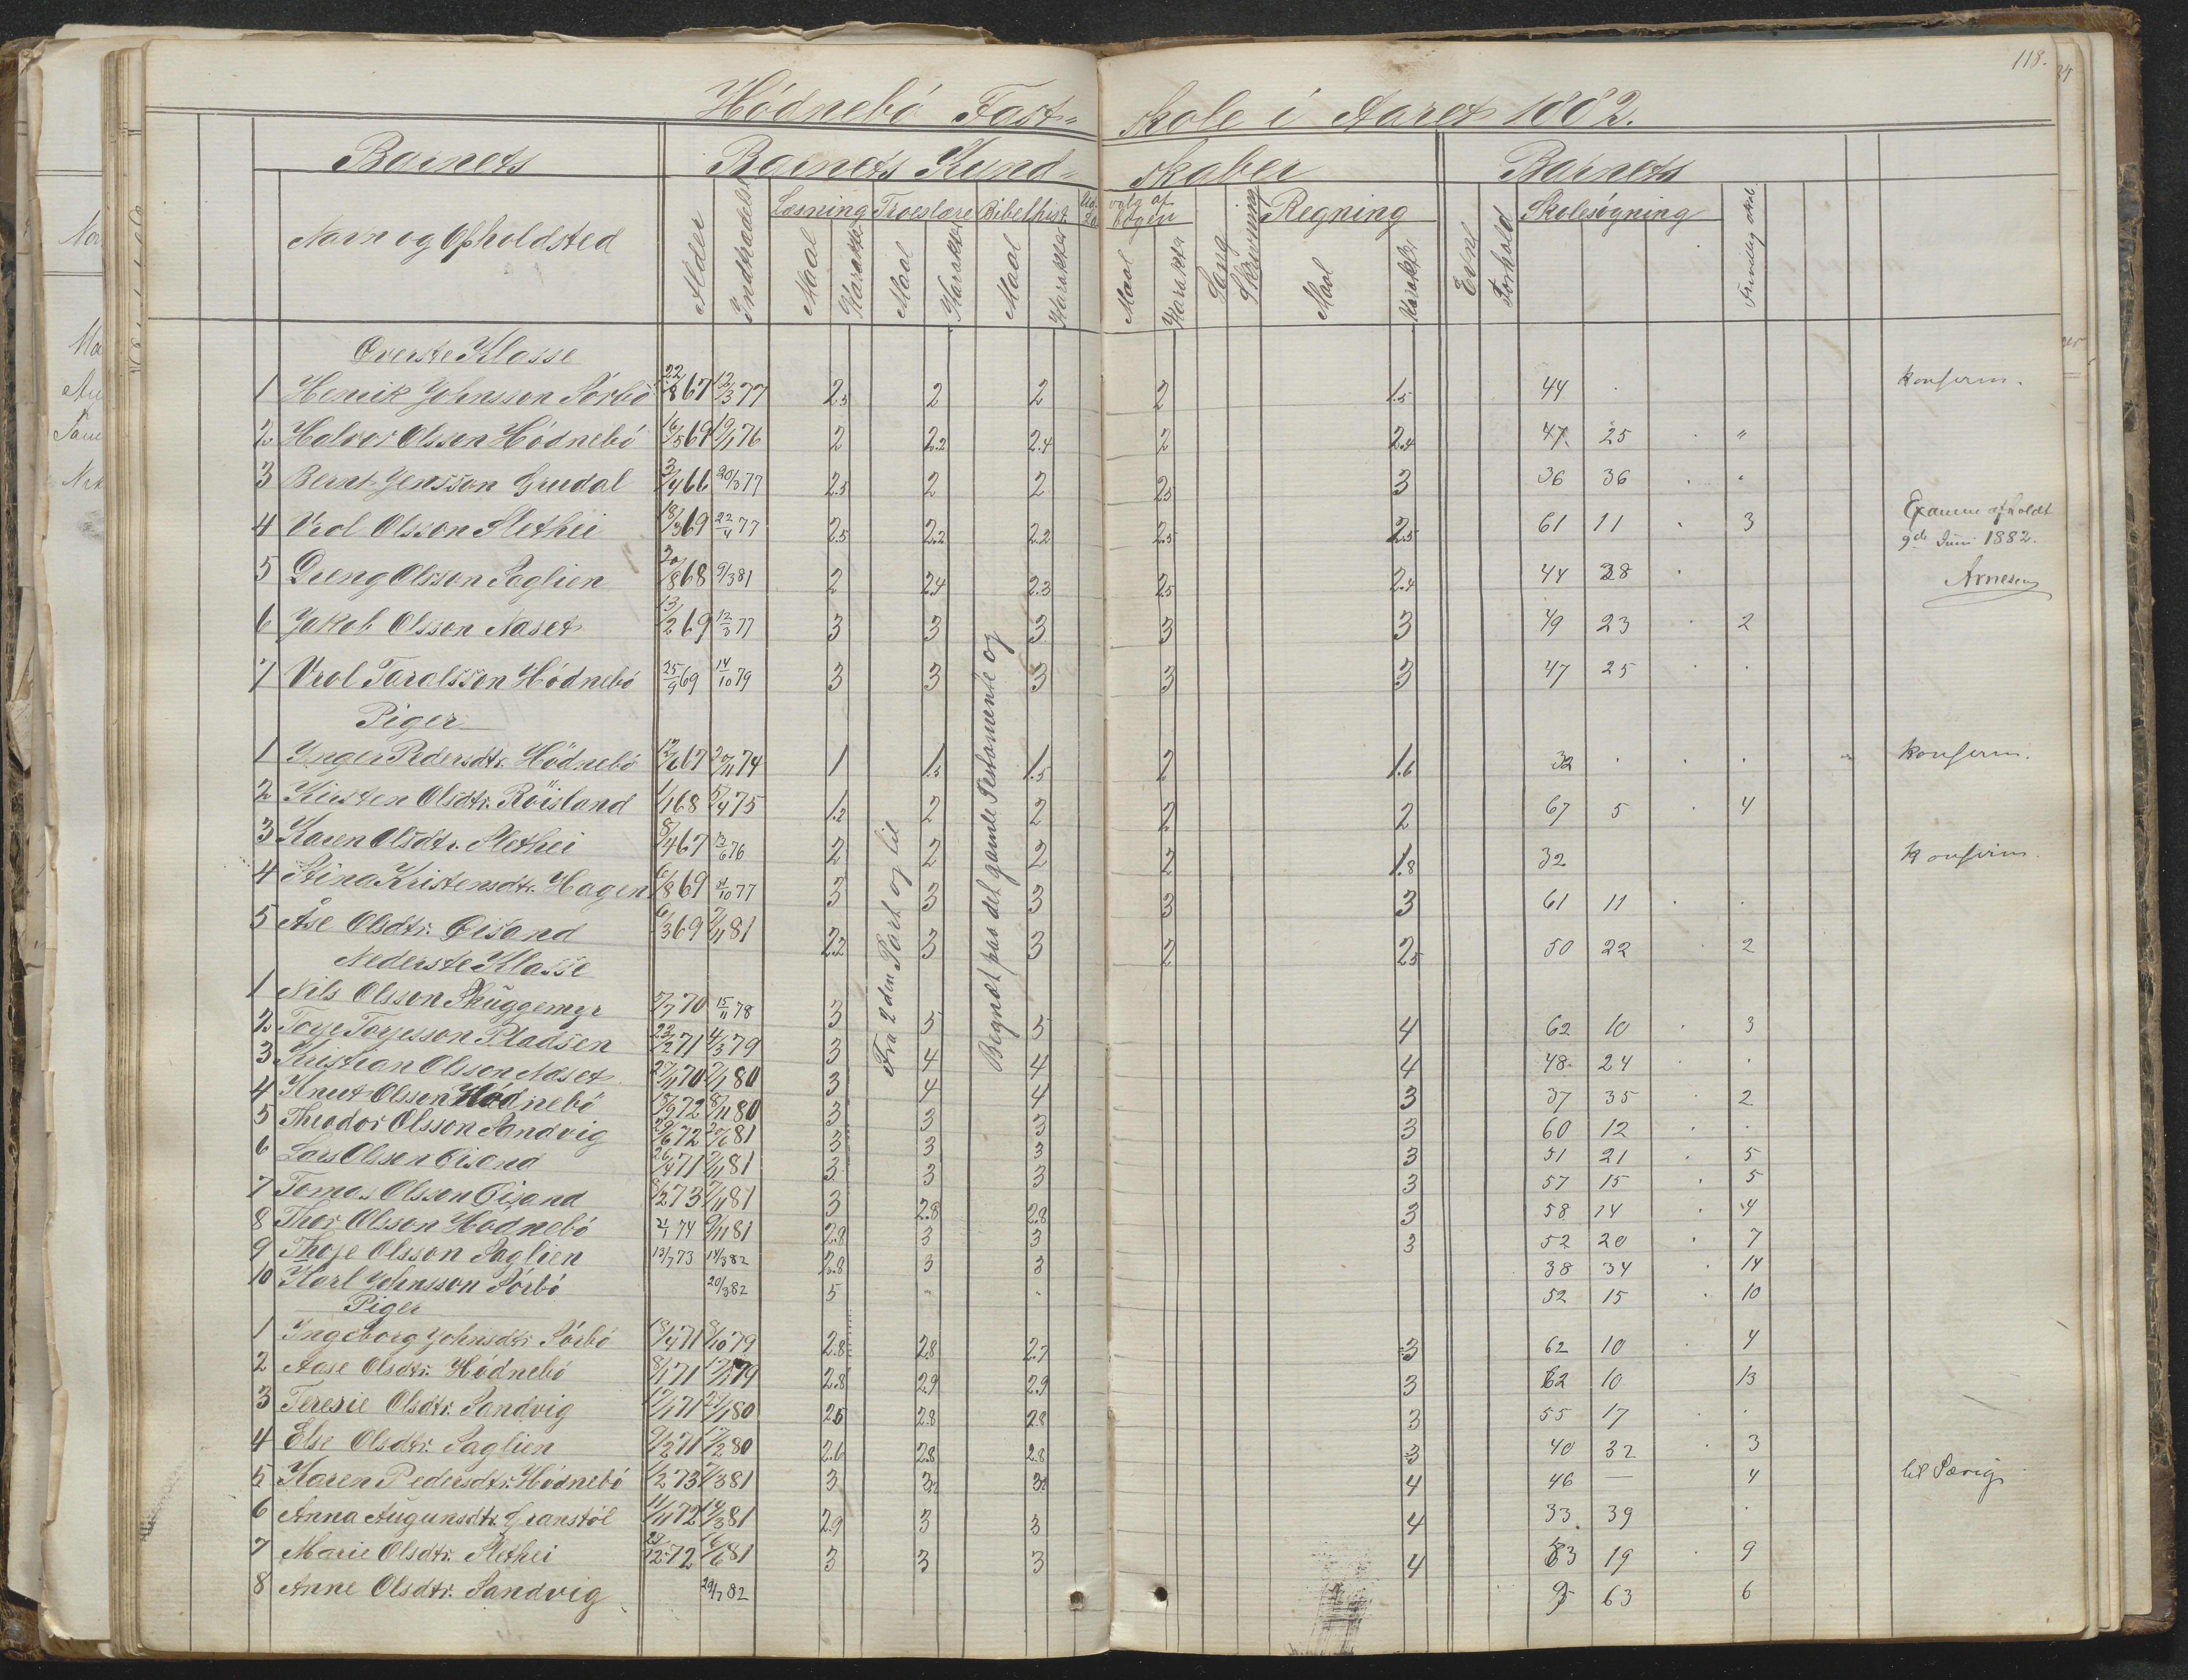 118.
Hódnebó Fast= skole i Aaret 1882.
Barnets Barnets Kund= skaber Barnets
Navn og Opholdsted Alder Indtrædelse Læsning Troeslære Bibelhist. Udvalg af Regning Evne Forhold Skolesógning
Maal Karakter Maal Karakter Maal Karakter Maal Karakter Sang Skrivning Maal Karakter
Överste Klasse
1 Henrik Johnsson Sórbó 22/8 67 12/3 77 2.5 2 2 2 1.5 44 konferm.
2 Halvor Olsson Hódnebó 16/5 69 19/1 76 2 2.2 2.4 2 2.4 47 25 "
3 Bernt Jensson Grudal 3/4 66 20/3 77 2.5 2 2 2.5 3 36 36
4 Vrol Olsson Slethei 18/3 69 22/4 77 2.5 2.2 2.2 2.5 2.5 61 11 3
Examen afholdt
9de Juni 1882.
Arnesen
5 Dreng Olsson Saglien 20/8 68 9/3 81 2 2.4 2.3 2.5 2.4 44 28
6 Jakob Olsson Naset 13/2 69 12/3 77 3 3 3 3 3 49 23 2
7 Vrol Taralsson Hódnebó 25/9 69 14/10 79 3 3 3 3 3 47 25
Piger
1 Inger Pedersdtr. Hódnebó 12/6 67 20/11 74 1 1.5 1.5 2 1.6 32 konferm.
2 Kirsten Olsdtr. Röisland 1/1 68 5/4 75 1.2 2 2 2 2 67 5 4
3 Karen Olsdtr. Slethei 8/4 67 13/6 76 2 2 2 2 1.8 32 konferm.
4 Stina Kristensdtr. Hagen 6/8 69 31/10 77 3 3 3 3 3 61 11
5 Åse Olsdtr. Öisand 6/3 69 7/11 81 2.2 3 3 2 2.5 50 22 2
Fra 2den Part og til
Begyndt paa det gamle Testamente og
Nederste Klasse
1 Nils Olsson Skuggemyr 5/7 70 15/11 78 3 5 5 4 62 10 3
2 Torje Torjesson Pladsen 23/2 71 4/3 79 3 4 4 4 48 24
3 Kristian Olsson Naset 27/11 70 7/1 80 3 4 4 3 37 35 2
4 Knut Olsson Hódnebó 15/9 72 8/11 80 3 3 3 3 60 12
5 Theodor Olsson Sandvig 29/6 72 20/6 81 3 3 3 3 51 21 5
6 Lars Olsson Öisand 26/4 71 7/11 81 3 3 3 3 57 15 5
7 Tomas Olsson Öisand 8/2 73 7/11 81 3 2.8 2.8 3 58 14 4
8 Thor Olsson Hódnebó 2/1 74 9/11 81 2.8 3 3 3 52 20 7
9 Thoje Olsson Saglien 13/7 73 14/3 82 2.8 3 3 38 34 14
10 Karl Johnsson Sórbó 20/3 82 5 52 15 10
Piger
1 Ingeborg Johnsdtr. Sórbó 18/4 71 8/10 79 2.8 2.8 2.7 3 62 10 4
2 Aase Olsdtr. Hódnebó 8/1 71 79 2.8 2.9 2.9 3 62 10 13
3 Teresie Olsdtr. Sandvig 17/1 71 29/1 80 2.5 2.8 2.8 3 55 17
4 Else Olsdtr. Saglien 9/2 71 17/2 80 2.6 2.8 2.8 3 40 32 3
5 Karen Pedersdtr. Hódnebó 1/2 73 7/3 81 3 3 3 4 46 — 4 til Særig
6 Anna Augunsdtr. Granstól 11/11 72 14/3 81 2.9 3 3 4 33 39
7 Marie Olsdtr. Slethei 29/12 72 16/6 81 3 3 3 4 53 19 9
8 Anne Olsdtr. Sandvig 29/7 82 9 63 6